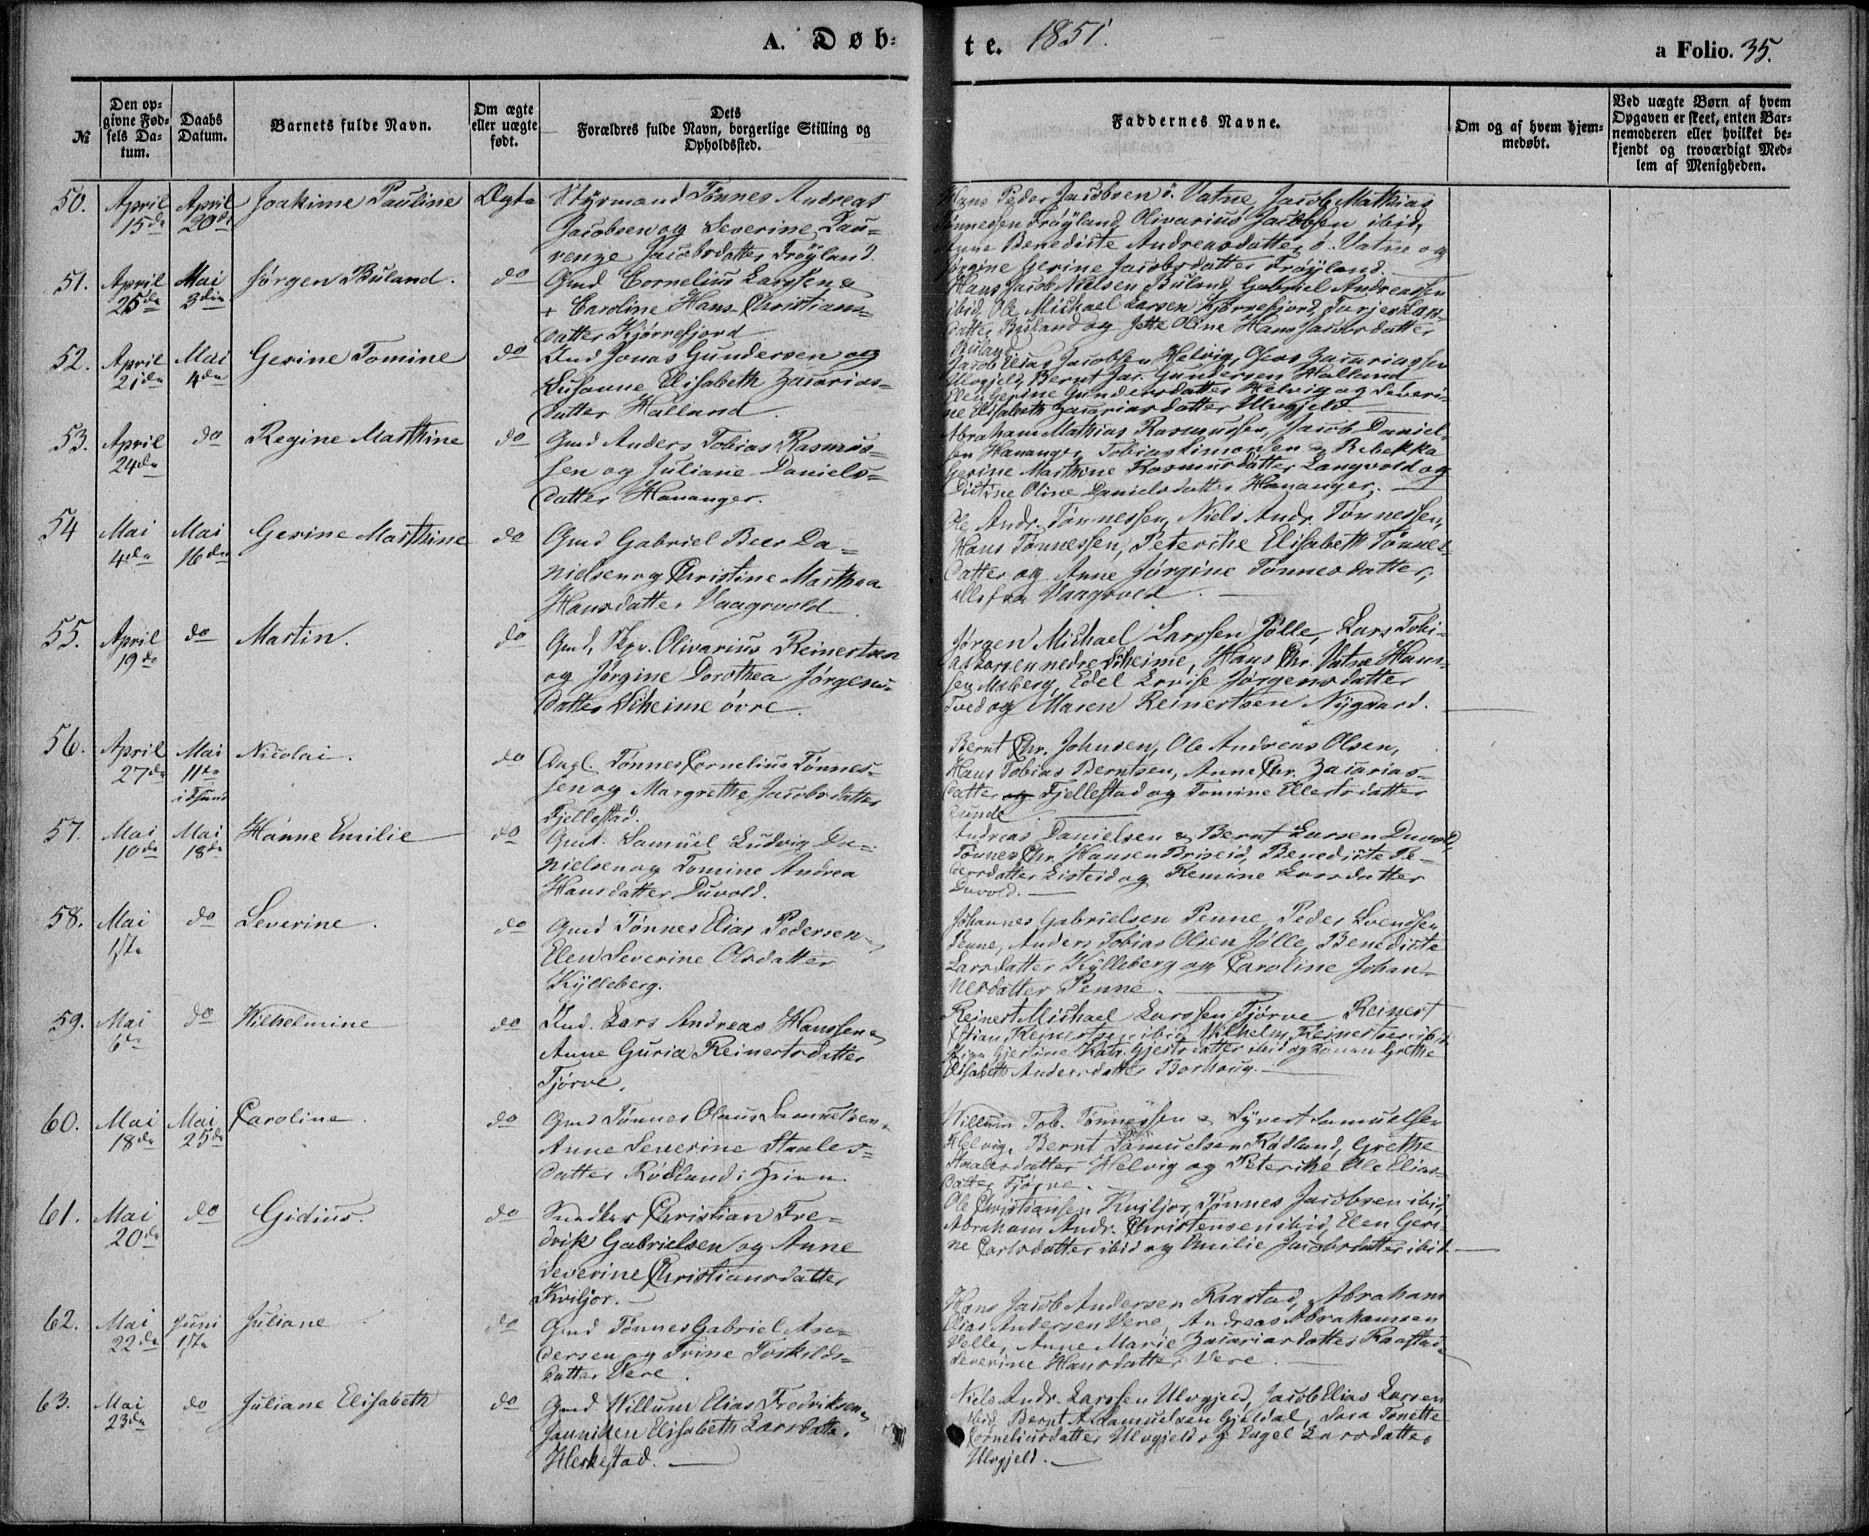 A. Døb-
te. 1851.
a Folio. 35.
№
Den op-
givne Fød-
sels Da-
tum.
Daabs
Datum.
Barnets fulde Navn.
Om ægte
eller uægte
født.
Dets
Forældres fulde Navn, borgerlige Stilling og
Opholdssted.
Faddernes Navne.
Om og af hvem hjem-
medøbt.
Ved uægte Børn af hvem
Opgaven er skeet, enten Bar-
nemoderen eller hvilket be-
kjendt og troværdigt Med-
lem af Menigheden.
50. April 15de April 20de Joakime Pauline Ægte
Styrmand Tønnes Andreas
Jacobsen og Severine Lau-
renze Jacobsdatter Frøyland.
Hans Peder Jacobsen ö. Vatne, Jacob Mathias
Tønnesen Frøyland, Olivarius Jacobsen ibid,
Anne Benedicte Andreasdatter ö. Vatne og
Jørgine Gerine Jacobsdatter Frøyland.
51. April 25de Mai 3die Jørgen Buland. do
Gmd Cornelius Larssen &
+ Caroline Hans-Christians-
datter Kjørrefjord
Hans Jacob Nielsen Buland, Gabriel Andreassen
ibid, Ole Michael Larsen Kjørrefjord, Terjer Lars-
datter Buland og Jette Oline Hans Jacobsdatter
Buland
52. April 21de Mai 4de Gerine Tomine do
Ind Jonas Gundersen og
Susanne Elisabeth Zacarias-
datter Halland.
Jacob Elias Jacobsen Helvig, Osas Zacariassen
Ulvgjeld, Bernt Jac. Gundersen Halland
Elen Gerine Gundersdatter Helvig og Severi-
ne Elisabeth Zacariasdatter Ulvgjeld
53. April 24de do Regine Marthine do
Gmd Anders Tobias Rasmus-
sen og Juliane Daniels-
datter Hananger.
Abraham Mathias Rasmussen, Jacob Daniel-
sen Hananger, Tobias Simonsen & Rebekka
Gerine Marthine Rasmusdatter Langvold og
Oline Danielsdatter Hananger.
54 Mai 4de Mai 16de Gerine Marthine do
Gmd Gabriel Beer Da-
nielsen og Christine Marthea
Hansdatter Vaagsvold
Ole Andr. Tønnessen, Niels Andr. Tønnessen,
Hans Tønnessen, Peterche Elisabeth Tønnes-
datter og Anne Jørgine Tønnesdatter,
alle fra Vaagsvold.
55. April 19de do Martin. do
Gmd, Skpr. Olivarius Reinertsen
og Jørgine Dorothea Jørgens-
datter Skeime övre.
Jørgen Michael Larssen Jølle, Lars Tobi-
as Larsen nedre Skeime, Hans Chr. Vatne Hans-
sen Maberg, Edel Lovise Jørgensdatter
Tved og Maren Reinertsen Nygaard.
56. April 27de Mai 11te i Sund Nicolai. do
Tønnes Cornelius Tønnes-
sen og Margrethe Jacobsdatter
Fjellestad.
Bernt Chr. Johnsen, Ole Andreas Olsen,
Hans Tobias Berntsen, Anne Chr. Zacarias-
datter og Fjellestad og Tomine Ellertsdatter
Lunde
57. Mai 10de Mai 18de Hanne Emilie do
Gmd. Samuel Ludvig Da-
nielsen og Tomine Andrea
Hansdatter Duvold.
Andreas Danielsen & Bernt Larsen Duvold,
Tønnes Chr. Hansen Briseid, Benedicte Pe-
dersdatter Listeid og Remine Larsdatter
Duvold.
58. Mai 1ste do Severine. do
Gmd Tønnes Elias Pedersen
Elen Severine Olsdatter
Kÿlleberg.
Johannes Gabrielsen Penne, Peder Svendsen
Penne, Anders Tobias Olsen Jølle, Benedicte
Larsdatter Kÿlleberg og Caroline Johan-
nesdatter Penne.
59. Mai 6te do Wilhelmine do
Ind. Lars Andreas Hanssen &
Anne Guria Reinertsdatter
Tjørve.
Reinert Michael Larssen Tjørve, Reinert
Stian Reinertsen ibid, Wilhelm Reinertsen ibid,
Gjertine Kath. Gjertsdatter ibid og Grethe
Elisabeth Andersdatter Borhoug.
60. Mai 18de Mai 25de Caroline. do
Gmd Tønnes Olaus Samuelsen &
Anne Severine Staales-
datter Rødland
Willum Tob. Tønnessen & Syvert Samuelsen
Helvig, Bernt Samuelsen Rødland, Grethe
Staalesdatter Helvig og Peterike Ole Elias-
datter Tjørve.
61. Mai 20de do Gidius. do
Snedker Christian Fre-
drik Gabrielsen og Anne
Severine Christiansdatter
Kviljor.
Ole Christiansen Kviljor, Tønnes Jacobsen ibid,
Abraham Andr. Christensen ibid, Elen Geri-
ne Carlsdatter ibid og Emilie Jacobsdatter ibid.
62. Mai 22de Juni 1ste Juliane do
Gmd Tønnes Gabriel An-
dersen og Trine Torkilds-
datter Vere.
Hans Jacob Andersen Raastad, Abraham
Elias Andersen Vere, Andreas Abrahamsen
Velle, Anne Marie Zacariasdatter Raastad &
Severine Hansdatter Vere.
63. Mai 23de do Juliane Elisabeth do
Gmd Willum Elias Fredriksen &
Janniken Elisabeth Larsdatter
Herkestad.
Niels Andr. Larssen Ulvgjeld, Jacob Elias Larsen
ibid, Bernt A. Samuelsen Gjeldal, Sara Tonette
Corneliusdatter Ulvgjeld og Engel Larsdatter
Ulvgjeld.